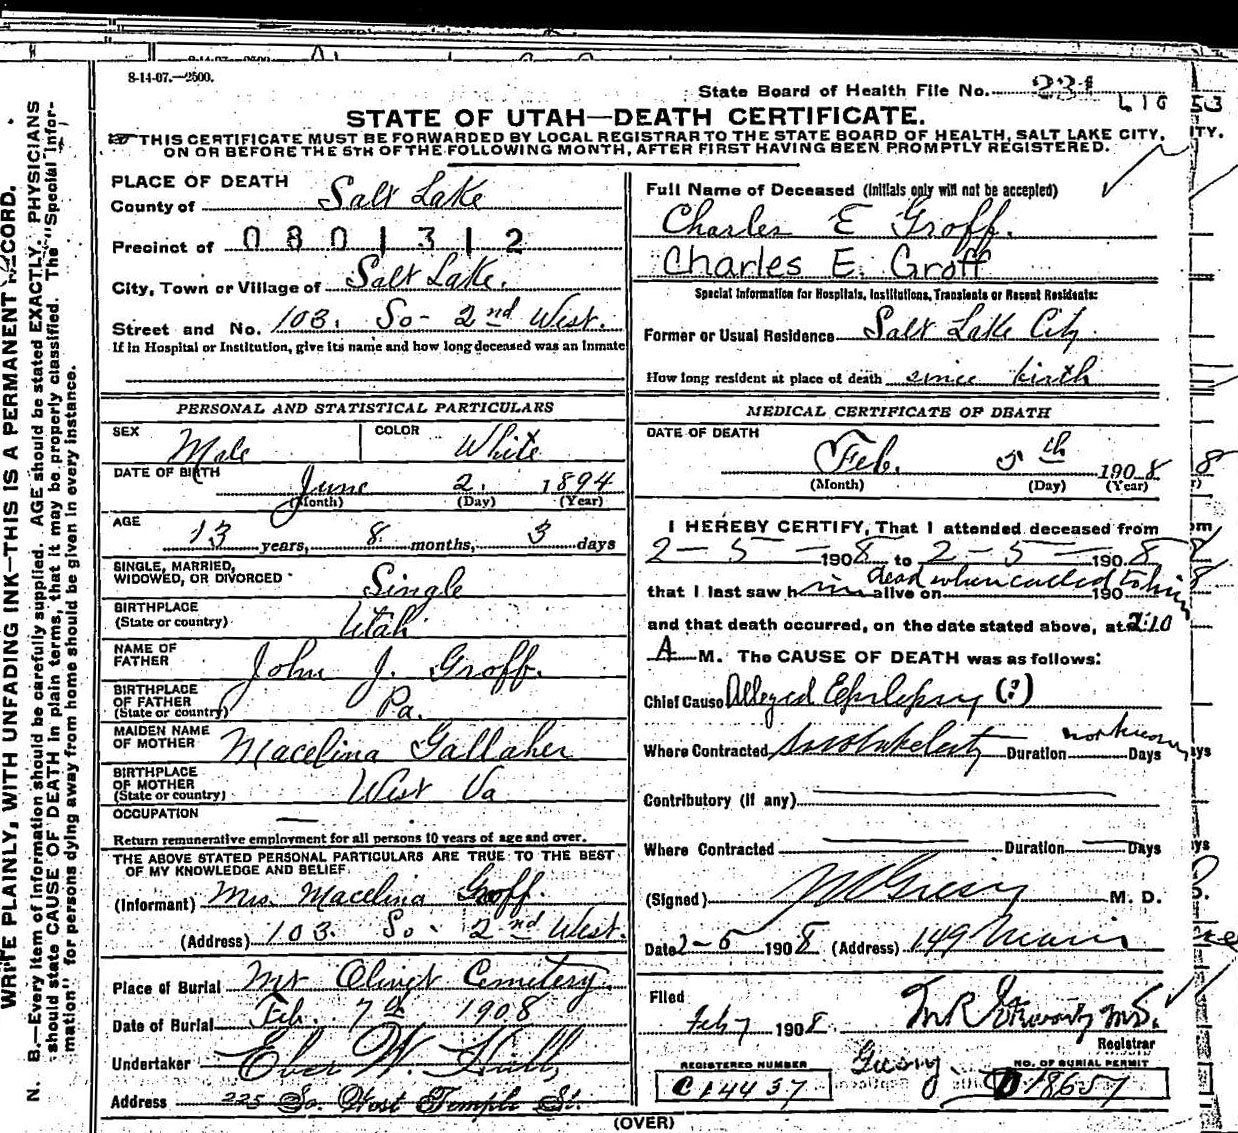 8-14-07.—2500.
State Board of Health File No. 231
STATE OF UTAH—DEATH CERTIFICATE.
THIS CERTIFICATE MUST BE FORWARDED BY LOCAL REGISTRAR TO THE STATE BOARD OF HEALTH, SALT LAKE CITY,
ON OR BEFORE THE 5TH OF THE FOLLOWING MONTH, AFTER FIRST HAVING BEEN PROMPTLY REGISTERED.
WRITE PLAINLY, WITH UNFADING INK—THIS IS A PERMANENT RECORD.
N. B.—Every item of information should be carefully supplied. AGE should be stated EXACTLY. PHYSICIANS
should state CAUSE OF DEATH in plain terms, that it may be properly classified. The "Special Infor-
mation" for persons dying away from home should be given in every instance.
PLACE OF DEATH
County of Salt Lake
Precinct of 0801312
City, Town or Village of Salt Lake.
Street and No. 103. So- 2nd West.
If in Hospital or Institution, give its name and how long deceased was an Inmate
PERSONAL AND STATISTICAL PARTICULARS
SEX Male COLOR White
DATE OF BIRTH June 2. 1894
(Month) (Day) (Year)
AGE 13 years, 8 months, 3 days
SINGLE, MARRIED,
WIDOWED, OR DIVORCED Single
BIRTHPLACE
(State or country) Utah
NAME OF
FATHER John J. Groff.
BIRTHPLACE
OF FATHER
(State or country) Pa.
MAIDEN NAME
OF MOTHER Macelina Gallaher
BIRTHPLACE
OF MOTHER
(State or country) West Va
OCCUPATION —
Return remunerative employment for all persons 10 years of age and over.
THE ABOVE STATED PERSONAL PARTICULARS ARE TRUE TO THE BEST
OF MY KNOWLEDGE AND BELIEF.
(Informant) Mrs. Macelina Groff.
(Address) 103. So- 2nd West.
Place of Burial Mt Olivet Cemetery.
Date of Burial Feb. 7th 1908
Undertaker Eber W. Hall,
Address 225 So. West Temple St.
Full Name of Deceased (Initials only will not be accepted)
Charles E Groff.
Charles E. Groff
Special Information for Hospitals, Institutions, Transients or Recent Residents:
Former or Usual Residence Salt Lake City
How long resident at place of death since birth
MEDICAL CERTIFICATE OF DEATH
DATE OF DEATH
Feb. 5th 1908
(Month) (Day) (Year)
I HEREBY CERTIFY, That I attended deceased from
2-5- 1908 to 2-5- 1908
that I last saw him alive on dead when called to him 190
and that death occurred, on the date stated above, at 2:10
A M. The CAUSE OF DEATH was as follows:
Chief Cause Alleged Epilepsy (?)
Where Contracted Duration not known Days
Contributory (if any)
Where Contracted Duration Days
(Signed) M. D.
Date 2-5 1908 (Address) 149 Main
Filed
Feb 7 1908.
Registrar
REGISTERED NUMBER
C14437
NO. OF BURIAL PERMIT
D18657
(OVER)